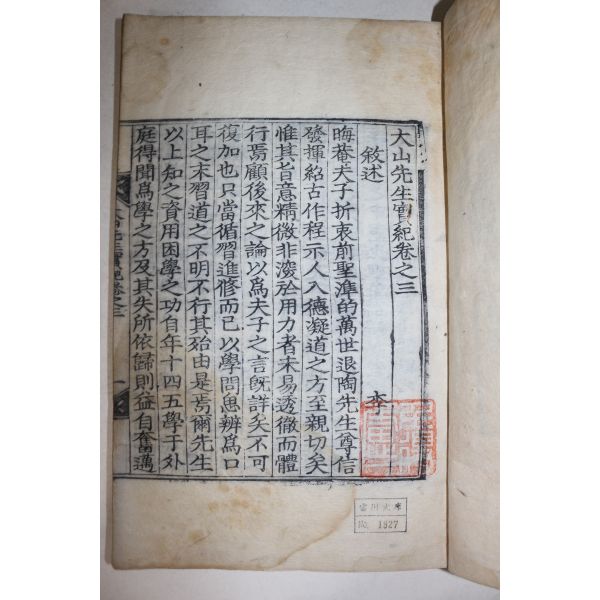 大山先生實紀卷之三
敘述
李
晦菴夫子折衷前聖準的萬世退陶先生尊信
發揮紹古作程示人入德凝道之方至親切矣
惟其旨意精微非深於用力者未易透徹而體
行焉顧後來之論以爲夫子之言旣詳矣不可
復加也只當循習進修而已以學問思辨爲口
耳之末習道之不明不行其殆由是焉爾先生
以上知之資用困學之功自年十四五學于外
庭得聞爲學之方及其失所依歸則益自奮邁
大山先生實紀卷之三
一
No. 1827